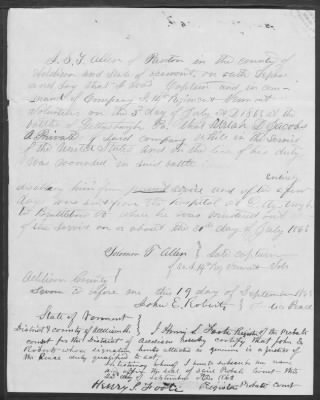 I, S. T. Allen of Panton in the county of
Addison and State of Vermont, on oath depose
and say that I was Captain and in com-
mand of Company I. 14" Regiment Vermont
Volunteers on the 3d day of July A.D. 1863 at the
battle of Gettysburgh Pa. that D. Jacobs
A Private of said company while in the service
of the United States and in the line of his duty
was wounded in said battle
entirely
him for service and after a few
days was sent from the hospital at Gettysburgh
to Brattleboro Vt where he was mustered out
of the service on or about the 30th day of July 1863
Solomon T Allen } Late captain
of Co. I 14th Regiment Vols
Addison County }
Sworn to before me this 19 day of September 1863
John E. Roberts
State of Vermont }
District & county of Addison } I Henry S. Foote Register of the Probate
court for the District of Addison hereby certify that John E.
Roberts whose signature is genuine is a justice of
the Peace duly qualified to act.
In testimony whereof I hereto subscribe my name
and affix the seal of said Probate Court this
day of September A.D. 1863
Henry S. Foote Register Probate Court